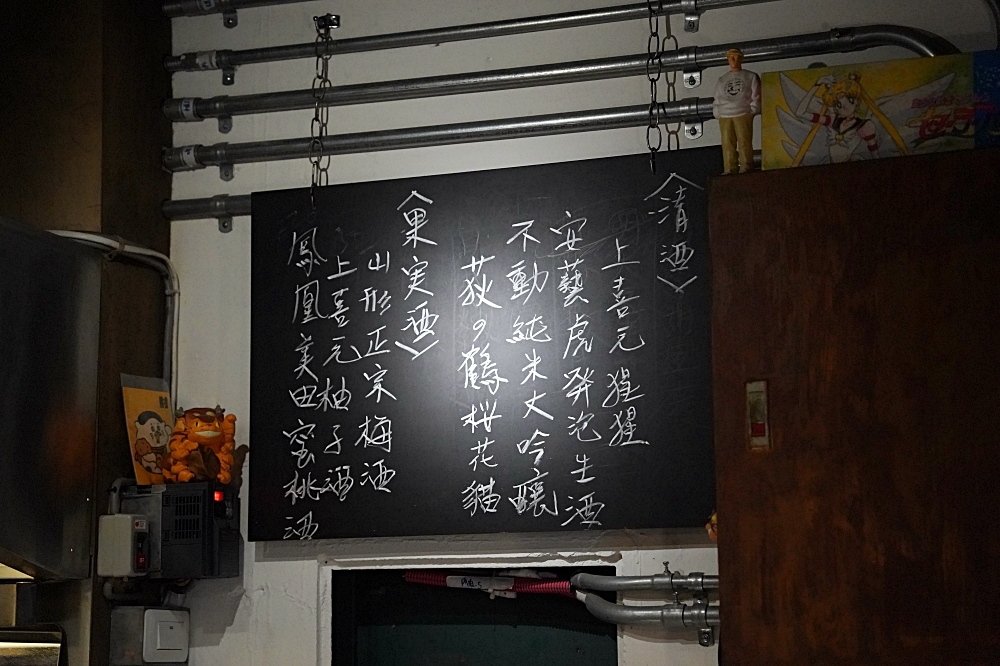 〈清酒〉
上喜元 猩猩
安藝虎発泡生酒
不動純米大吟釀
荻の鶴桜花貓
〈果実酒〉
山形正宗梅酒
上喜元柚子酒
鳳凰美田蜜桃酒